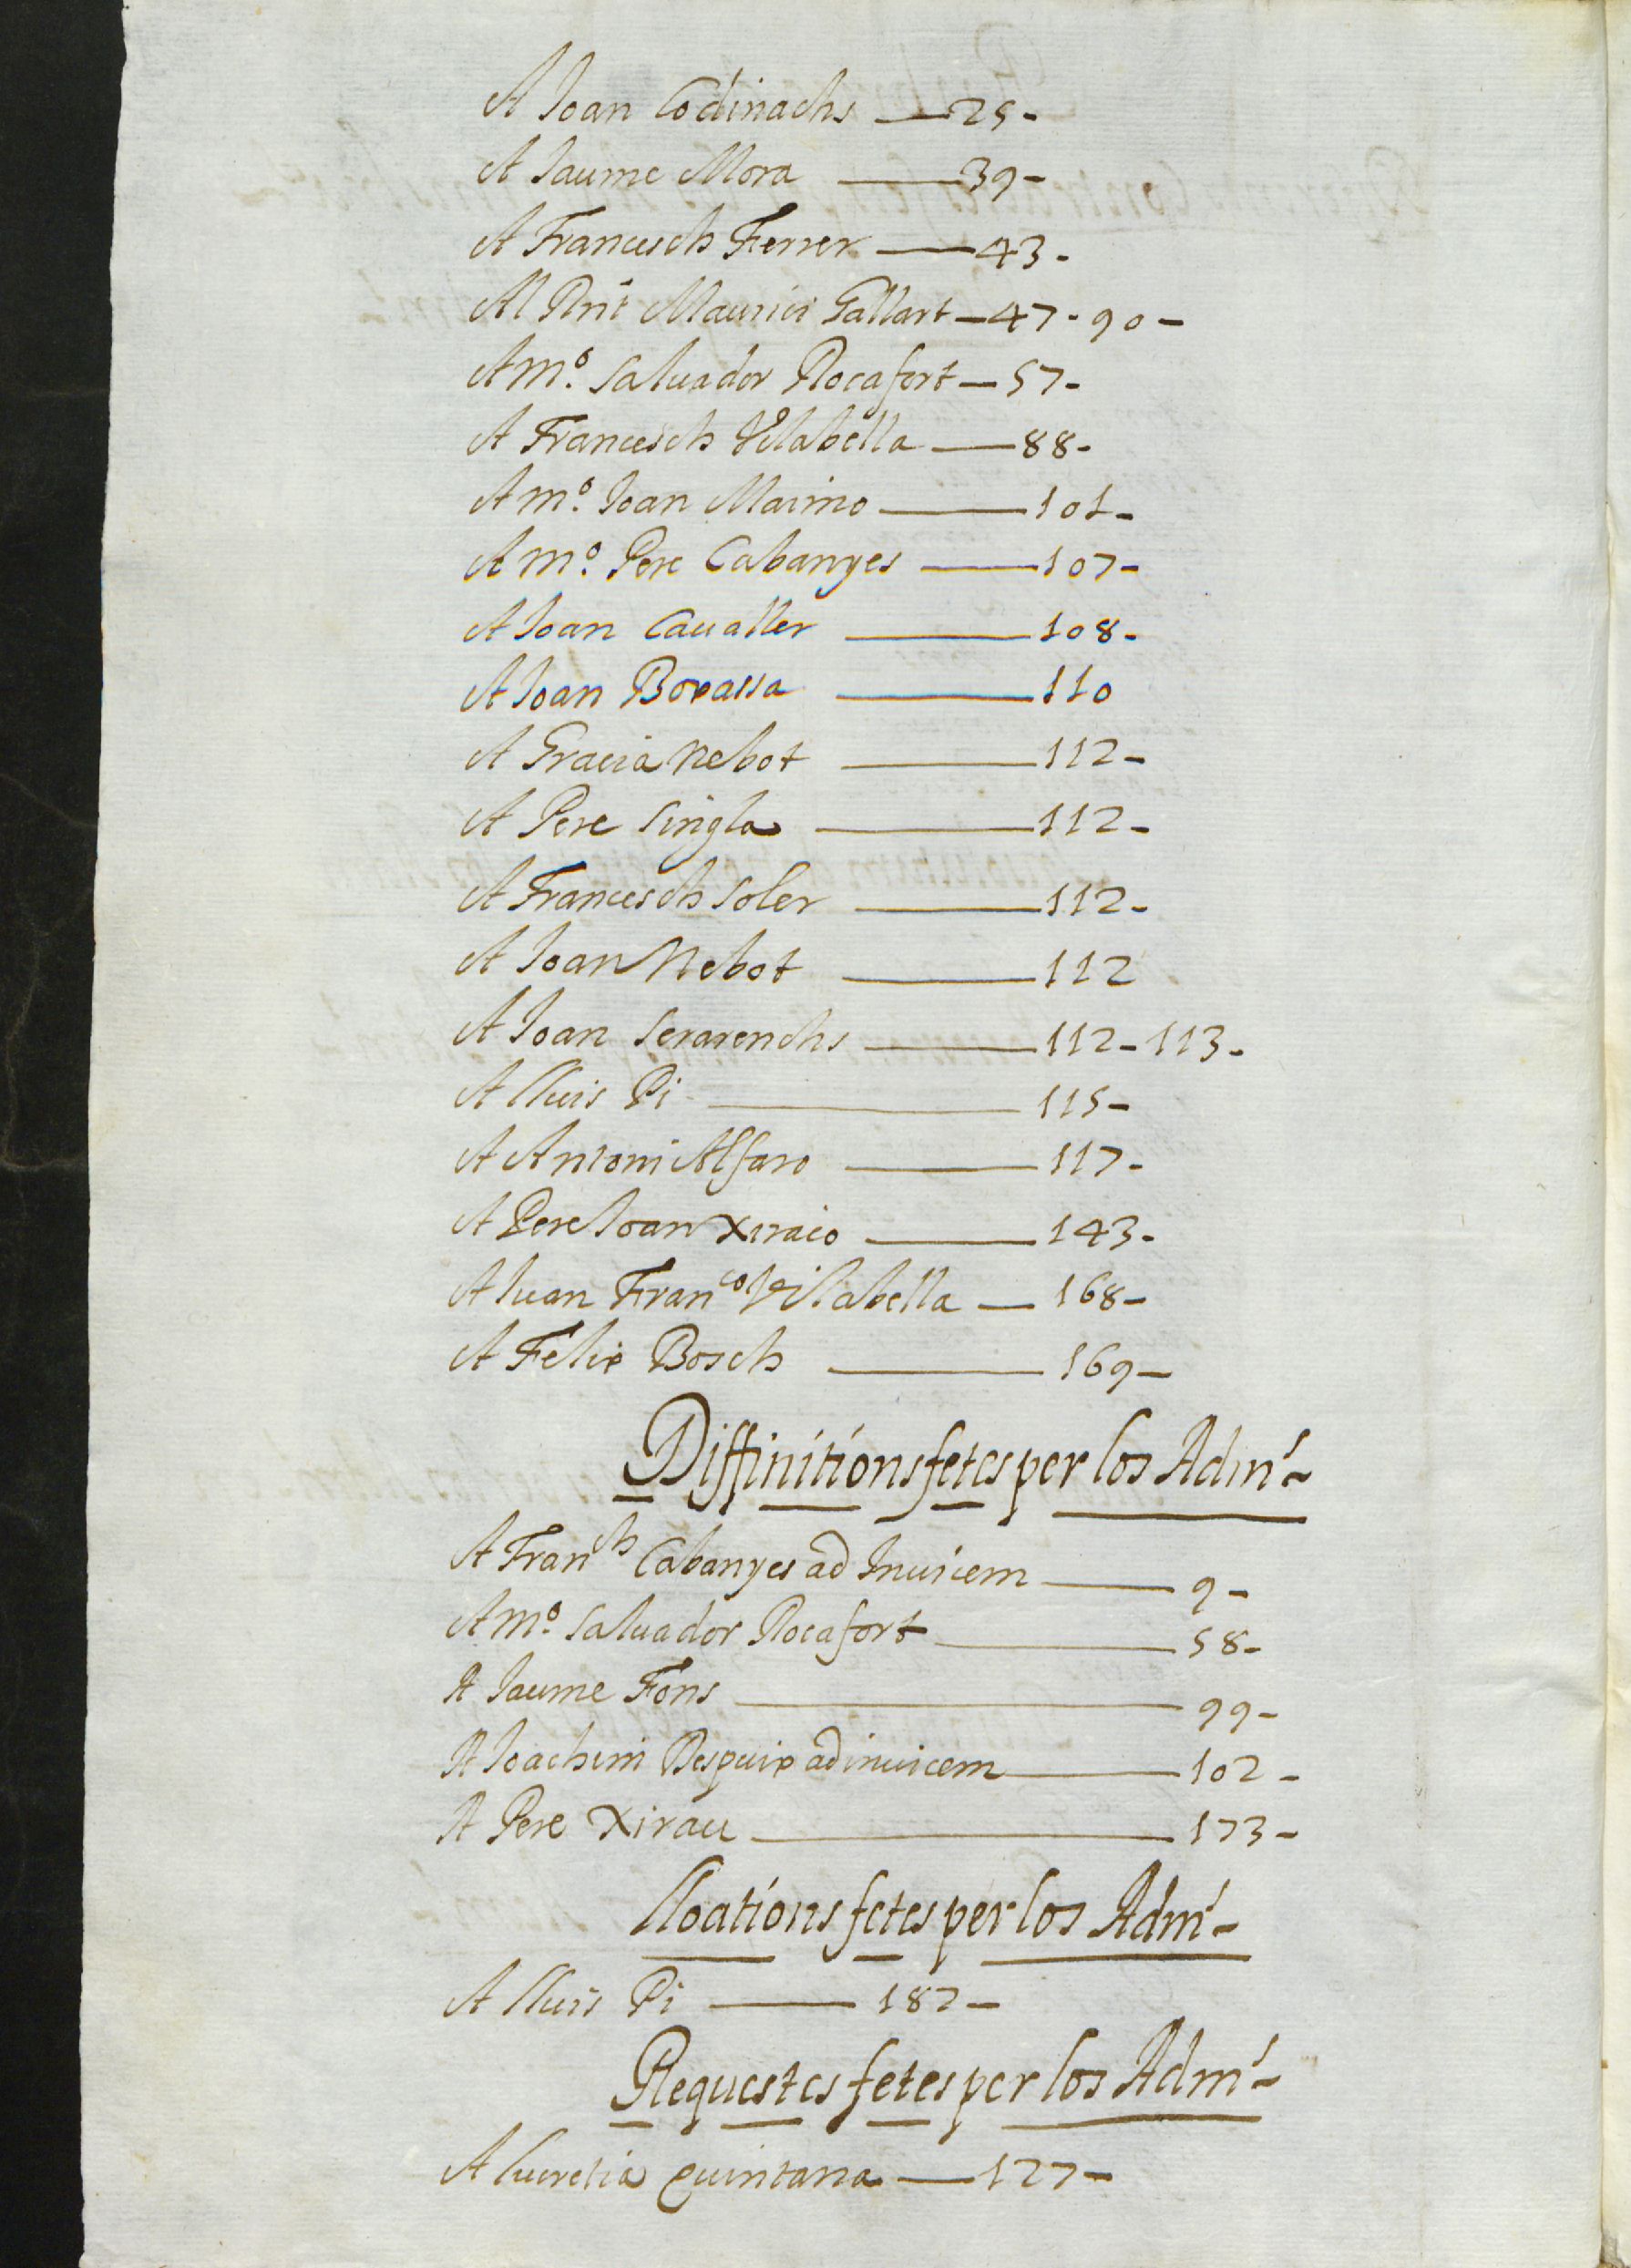 A Joan Codinachs — 25 -
A Jaume Mora — 39 -
A Francesch Ferrer — 43 -
Al Rnt Maurici Gallart — 47 - 90 -
A mº. Saluador Rocafort — 57 -
A Francesch Vilabella — 88 -
A mº. Joan Marimo — 101 -
A mº. Pere Cabanyes — 107 -
A Joan Caualler — 108 -
A Joan Borassa — 110
A Gracia Nebot — 112 -
A Pere Singla — 112 -
A Francesch Soler — 112 -
A Joan Nebot — 112
A Joan Serarenchs — 112 - 113 -
A lluis Pi — 115 -
A Antoni Alfaro — 117 -
A Pere Joan Xiraio — 143 -
A Juan Franco Vilabella — 168 -
A Felix Bosch — 169 -
Diffinitions fetes per los Adm -
A Franch Cabanyes ad Inuicem — 9 -
A mº. Saluador Rocafort — 58 -
A Jaume Fons — 99 -
A Joachim Despuix ad inuicem — 102 -
A Pere Xirau — 173 -
lloations fetes per los Adm -
A lluis Pi — 182 -
Requestes fetes per los Adm -
A lucretia Quintana — 127 -